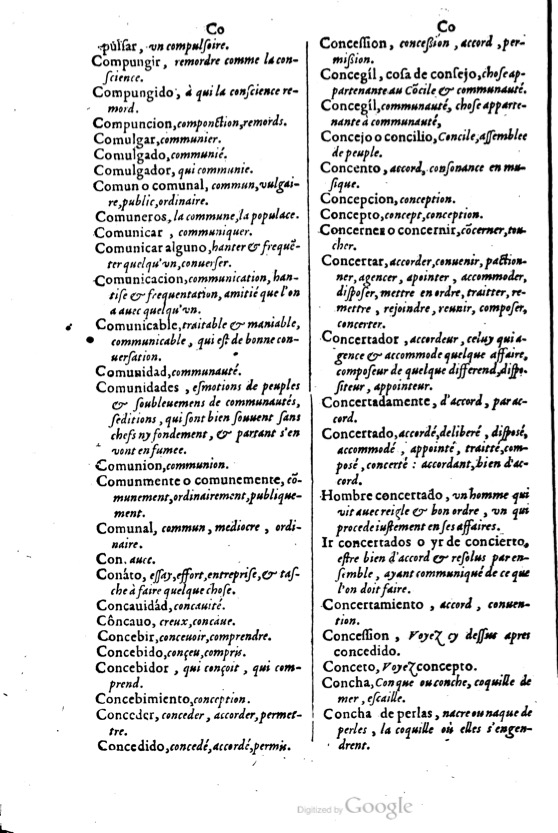 Co
pulſar, vn compulſoire.
Compungir, remordre comme la con-
ſcience.
Compungido, à qui la conſcience re-
mord.
Compuncion, componction, remords.
Comulgar, communier.
Comulgado, communié.
Comulgador, qui communie.
Comun o comunal, commun, vulgai-
re, public, ordinaire.
Comuneros, la commune, la populace.
Comunicar, communiquer.
Comunicar alguno, hanter & frequē-
ter quelqu'vn, conuerſer.
Comunicacion, communication, han-
tiſe & frequentation, amitié que l'on
a auec quelqu'vn.
Comunicable, traitable & maniable,
communicable, qui eſt de bonne con-
uerſation.
Comunidad, communauté.
Comunidades, eſmotions de peuples
& ſoubleuemens de communautés,
ſeditions, qui ſont bien ſouuent ſans
chefs ny fondement, & partant s'en
vont en fumee.
Comunion, communion.
Comunmente o comunemente, cō-
munement, ordinairement, publique-
ment.
Comunal, commun, mediocre, ordi-
naire.
Con. auec.
Conàto, eſſay, effort, entrepriſe, & taſ-
che à faire quelque choſe.
Concauidád, concauité.
Côncauo, creux, concaue.
Concebir, conceuoir, comprendre.
Concebido, conçeu, compris.
Concebidor, qui conçoit, qui com-
prend.
Concebimiento, conception.
Conceder, conceder, accorder, permet-
tre.
Concedido, concedé, accordé, permis.
Co
Conceſſion, conceſſion, accord, per-
miſion.
Concegíl, coſa de conſejo, choſe ap-
partenante au Cōcile & communauté.
Concegil, communauté, choſe apparte-
nante à communauté,
Concejo o concilio, Concile, aſſemblee
de peuple.
Concento, accord, conſonance en mu-
ſique.
Concepcion, conception.
Concepto, concept, conception.
Concerner o concernir, cōcerner, tou-
cher.
Concertar, accorder, conuenir, paction-
ner, agencer, apointer, accommoder,
diſpoſer, mettre en ordre, traitter, re-
mettre, rejoindre, reunir, compoſer,
concerter.
Concertador, accordeur, celuy qui a-
gence & accommode quelque affaire,
compoſeur de quelque differend, diſpo-
ſiteur, appointeur.
Concertadamente, d'accord, par ac-
cord.
Concertado, accordé, deliberé, diſpoſé,
accommodé, appointé, traitté, com-
poſé, concerté : accordant, bien d'ac-
cord.
Hombre concertado, vn homme qui
vit auec reigle & bon ordre, vn qui
procede iuſtement en ſes affaires.
Ir concertados o yr de concierto,
eſtre bien d'accord & reſolus par en-
ſemble, ayant communiqué de ce que
l'on doit faire.
Concertamiento, accord, conuen-
tion.
Conceſſion, Voyez cy deſſus apres
concedido.
Conceto, Voyez concepto.
Concha, Conque ou conche, coquille de
mer, eſcaille.
Concha de perlas, nacre ou naque de
perles, la coquille où elles s'engen-
drent.
Digitized by Google